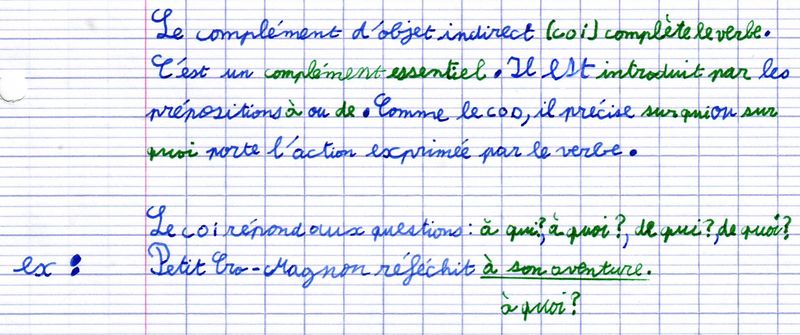 Le complément d'objet indirect (coi) complète le verbe.
C'est un complément essentiel. Il est introduit par les
prépositions à ou de. Comme le COD, il précise sur qui ou sur
quoi porte l'action exprimée par le verbe.
Le coi répond aux questions : à qui?, à quoi?, de qui?, de quoi?
ex : Petit Cro-Magnon réfléchit à son aventure.
à quoi?